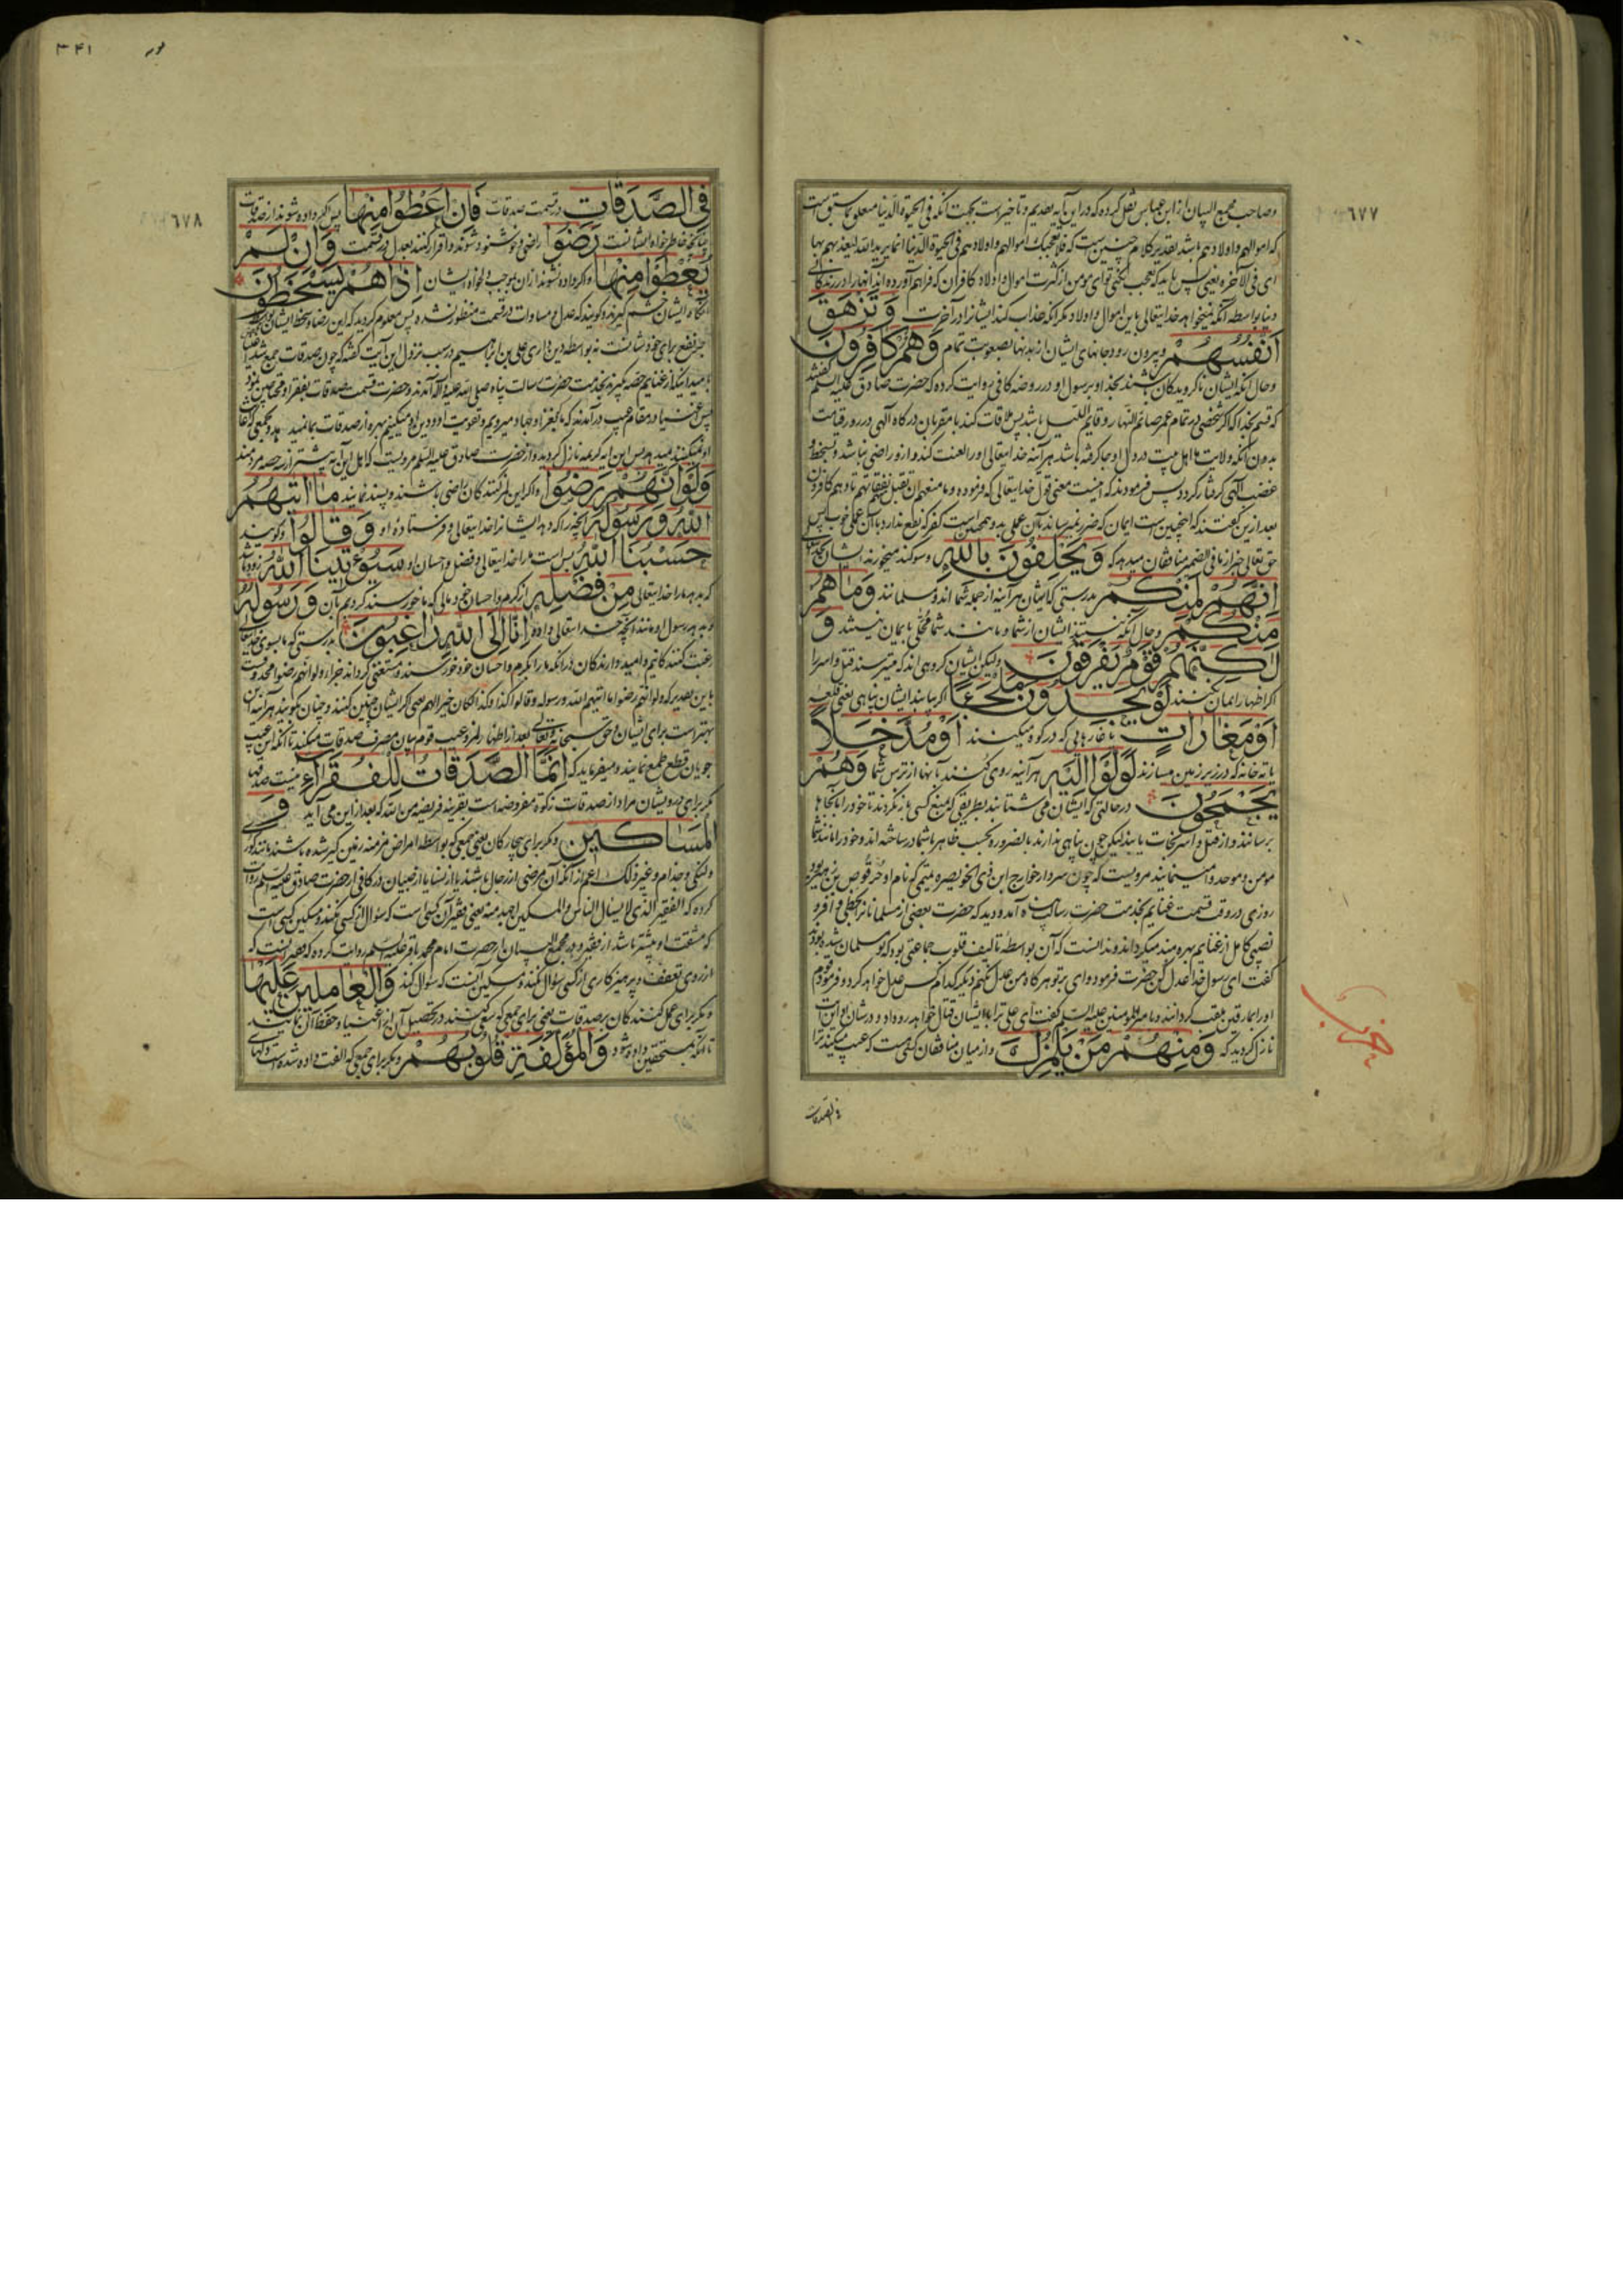 ٦٧٧
وصاحب مجمع البیان از ابن عباس نقل کرده که در این آیه تقدیم و تاخیر است بجهت آنکه فی الحیوة الدنیا متعلق بما سبق است
که اموالهم و اولادهم باشد تقدیر کلام چنین است که فلا تعجبک اموالهم و اولادهم فی الحیوة الدنیا انما یرید الله لیعذبهم بها
ای فی الآخرة یعنی پس باید که تعجب نکنی تو ای مومن از کثرت اموال و اولاد کافران که فراهم آورده اند آنها را در زندگانی
دنیا بواسطه آنکه نمیخواهد خدایتعالی باین اموال و اولاد مکر آنکه عذاب کند ایشانرا در آخرت وَتَزْهَقَ
اَنْفُسُهُمْ و بیرون رود جانهای ایشان از بدنها بصعوبت تمام وَهُمْ كَافِرُونَ
و حال آنکه ایشان ناکرویدکان باشند بخدا و برسول او در روضه کافی روایت کرده که حضرت صادق علیه السلم گفتند
که قسم بخدا که اکر شخصی در تمام عمر صائم النهار و قایم اللیل باشد پس ملاقات کند با مقربان درکاه آلهی در روز قیامت
بدون آنکه ولایت ما اهل بیت در دل او جا کرفته باشد هر آینه خدایتعالی او را لعنت کند و از او راضی نباشد و بسخط و
غضب آلهی کرفتار کردد پس فرمودند که اینست معنی قول خدایتعالی که فرموده و ما منعهم ان تقبل نفقاتهم تا و هم کافرون
بعد از این گفتند که همچنین است ایمان که ضرر نمیرساند بآن عملی بد و همچنین است کفر که نفع ندارد با آن عملی خوب پس
حق تعالی خبر از ما فی الضمیر منافقان میدهد که وَيَحْلِفُونَ بِاللهِ و سوکند میخورند ایشان بخدایتعالی
اِنَّهُمْ لَمِنْكُمْ بدرستی که ایشان هر آینه از جمله شما اند و مسلمانند وَمَا هُمْ
مِنْكُمْ و حال آنکه نیستند ایشان از شما و مانند شما متحلی بایمان نیستند وَ
لٰكِنَّهُمْ قَوْمٌ يَفْرَقُونَ ولیکن ایشان کروهی اند که میترسند قتل و اسر را
اکر اظهار ایمان نکنند لَوْ يَجِدُونَ مَلْجَئًا اکر بیابند ایشان پناهی یعنی قلعه
اَوْ مَغَارَاتٍ یا غارهایی که در کوه میکنند اَوْ مُدَّخَلًا
یا ته خانه که در زیر زمین میسازند لَوَلَّوْا اِلَيْهِ هر آینه روی کنند بآنها از ترس شما وَهُمْ
يَجْمَحُونَ در حالتی که ایشان می شتابند بطریقی که بمنع کسی باز نکردند تا خود را بآنجاها
برسانند و از قتل و اسر نجات یابند لیکن چون پناهی ندارند بالضروره بحسب ظاهر با شما در ساخته اند و خود را مانند شما
مومن و موحد وا مینمایند مرویست که چون سردار خوارج ابن ذی الخویصره تمیمی که نام او حرقوص بن زهیر بود
روزی در وقت قسمت غنایم بخدمت حضرت رسالت پناه آمد و دید که حضرت بعضی از مسلمانانرا بحظی وافر و
نصیبی کامل از غنایم بهره مند میکرداند و ندانست که آن بواسطه تالیف قلوب جماعتی بود که نو مسلمان شده بودند
گفت ای رسول خدا عدل کن حضرت فرمود وای بر تو هر کاه من عدل نکنم دیگر کدام کس عدل خواهد کرد و فرمود
او را بمارقین ملقب کردانند و با امیر المؤمنین علیه السلم گفت ای علی ترا با ایشان قتال خواهد رو داد و در شان او این آیت
نازل کردید که وَمِنْهُمْ مَنْ يَلْمِزُكَ و از میان منافقان کسی هست که عیب میکند ترا
فی الصدقات
٣٤١
٦٧٨
فِي الصَّدَقَاتِ در قسمت صدقات فَاِنْ اُعْطُوا مِنْهَا پس اکر داده شوند از صدقات
چنانچه خاطرخواه ایشانست رَضُوا راضی و خوشنود شوند و اقرار کنند بعدل در قسمت وَاِنْ لَمْ
يُعْطَوْا مِنْهَا و اکر داده نشوند از آن بموجب دلخواه ایشان اِذَا هُمْ يَسْخَطُونَ
آنکاه ایشان خشم گیرند و کویند که عدل و مساوات در قسمت منظور نشده و پس معلوم کردید که این رضا و سخط ایشان بواسطه
جر نفع برای خود شانست نه بواسطه دین داری علی بن ابراهیم در سبب نزول این آیت گفته که چون صدقات جمع شد اغنیا
بامید اینکه از غنایم حصه گیرند بخدمت حضرت رسالت پناه صلی الله علیه و آله آمدند و حضرت قسمت صدقات بفقرا و محتاجین نمود
پس اغنیا در مقام عیب در آمدند که ما بغزا و جهاد میرویم و تقویت او و دین او میکنیم بهره از صدقات بما نمیدهد و بجمعی که اعانت
او نمیکنند میدهد پس این آیه کریمه نازل کردید و از حضرت صادق علیه السلم مرویست که اهل این آیه بیشتر از دو حصه مردمند
وَلَوْ اَنَّهُمْ رَضُوا و اکر این لمز کنندکان راضی باشند و پسند نمایند مَا اٰتٰيهُمُ
اللهُ وَرَسُولُهُ آنچیز را که دهد ایشانرا خدایتعالی و فرستاده او وَقَالُوا و گویند
حَسْبُنَا اللهُ بس است ما را خدایتعالی و فضل و احسان او سَيُؤْتِينَا اللهُ زود باشد
که بدهد ما را خدایتعالی مِنْ فَضْلِهِ از کرم و احسان خود مالی که ما خورسند کردیم بآن وَرَسُولُهُ
و بدهد رسول او مانند آنچه خدایتعالی داده اِنَّا اِلَى اللهِ رَاغِبُونَ بدرستی که ما بسوی خدایتعالی
رغبت کنندکانیم و امیدوارندکان در آنکه ما را بکرم و احسان خود خورسند و مستغنی کرداند جزاء ولو انهم رضوا محذوفست
باین تقدیر که ولو انهم رضوا ما اتیهم الله و رسوله و قالوا کذا و کذا لکان خیرا لهم یعنی اکر ایشان چنین کنند و چنان کویند هر آینه این
بهتر است برای ایشان و حق سبحانه و تعالی بعد از اظهار لمز و عیب قوم بیان مصرف صدقات میکند تا آنکه این عیب
جویان قطع طمع نمایند و میفرماید که اِنَّمَا الصَّدَقَاتُ لِلْفُقَرَاءِ نیست صدقها
مکر برای درویشان مراد از صدقات زکوة مفروضه است بقرینه فریضة من الله که بعد از این می آید وَ
الْمَسَاكِينِ و مکر برای بیچارکان یعنی جمعی که بواسطه امراض مزمنه زمین گیر شده باشند مانند کوری
و لنکی و جذام و غیر ذلک اعم از آنکه آن مرضی از رجال باشند یا از نسا یا از صبیان در کافی از حضرت صادق علیه السلم روایت
کرده که الفقیر الذی لا یسال الناس و المسکین اجهد منه یعنی فقیر آن کسی است که سؤال از کسی نکند و مسکین کسی است
که مشقت او بیشتر باشد از فقیر و در مجمع البیان از حضرت امام محمد باقر علیه السلم روایت کرده که فقیر آنست که
از روی تعفف و پرهیزکاری از کسی سؤال نکند و مسکین آنست که سؤال کند وَالْعَامِلِينَ عَلَيْهَا
و مکر برای عمل کنندکان بر صدقات یعنی برای جمعی که سعی کنند در تحصیل آن از اغنیا و حفظ آن نمایند
تا آنکه بمستحقین داده شود وَالْمُؤَلَّفَةِ قُلُوبُهُمْ و مکر برای جمعی که الفت داده شده است دلهای